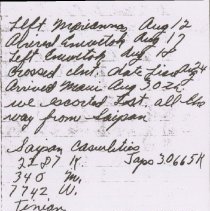 Left Marianna Aug 12
Arived Eniwetok Aug 17
Left Eniwetok Aug 18
Crossed Int. date Line Aug 24
Arrived Maui Aug 30th
we escorted Tost. all the
way from Saipan
Saipan Casualities
2287 K Japs 30665K
340 M.
7742 W.
Tenian